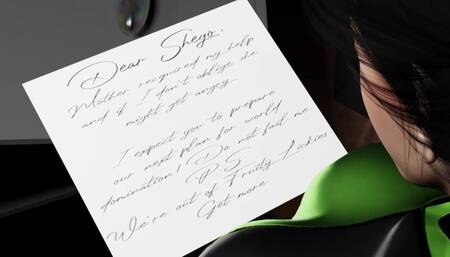 Dear Shego,
Mother required my help
and if I don't oblige she
might get angry.
I expect you to prepare
our next plan for world
domination! Do not fail me
PS
We're out of Fruity Lickies
Get more